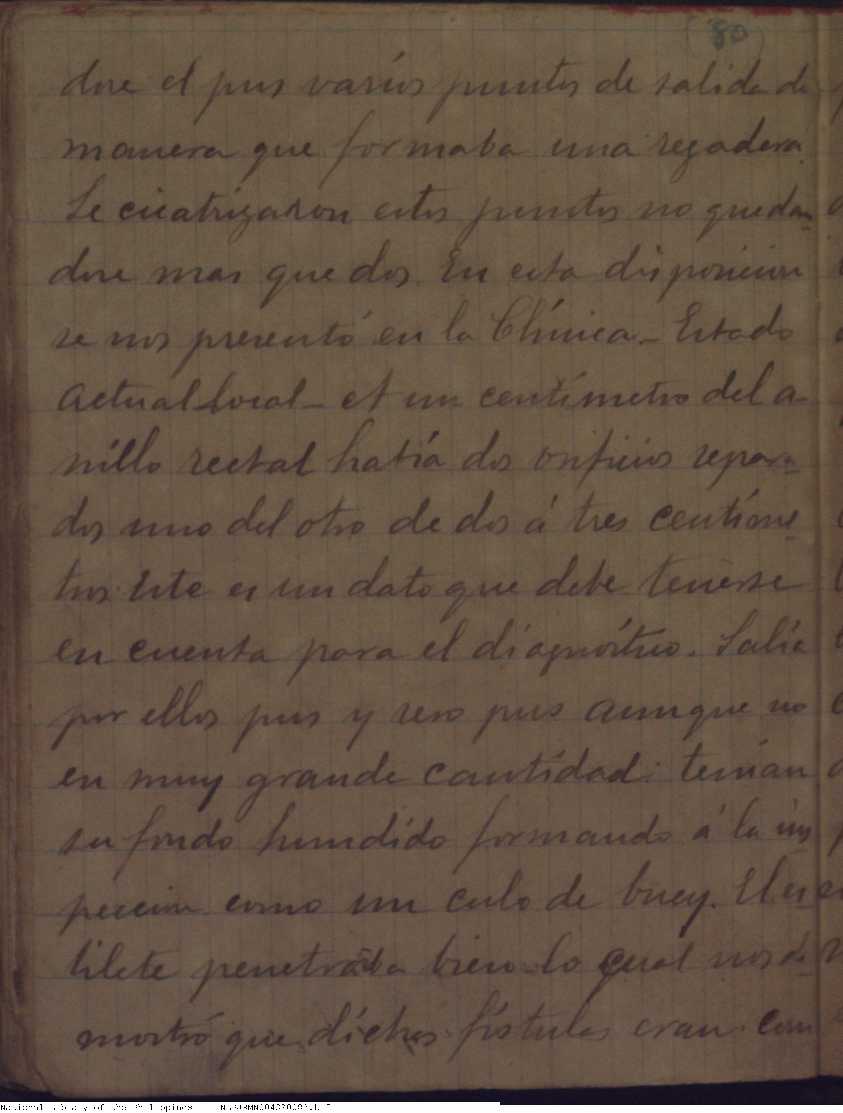 80
dose el pus varios puntos de salida de
manera que formaba una regadera.
Se cicatrizaron estos puntos no quedan-
dose mas que dos. En esta disposicion
se nos presentó en la Clínica. - Estado
actual local - A un centímetro del a-
nillo rectal había dos orificios separa-
dos uno del otro de dos á tres centíme-
tros. Este es un dato que debe tenerse
en cuenta para el diagnóstico. Salía
por ellos pus y sero pus aunque no
en muy grande cantidad: tenían
su fondo hundido formando á la ins
peccion como un culo de buey. El es-
tilete penetraba bien lo qual nos de-
mostró que dichas fístulas eran com
National Library of the Philippines